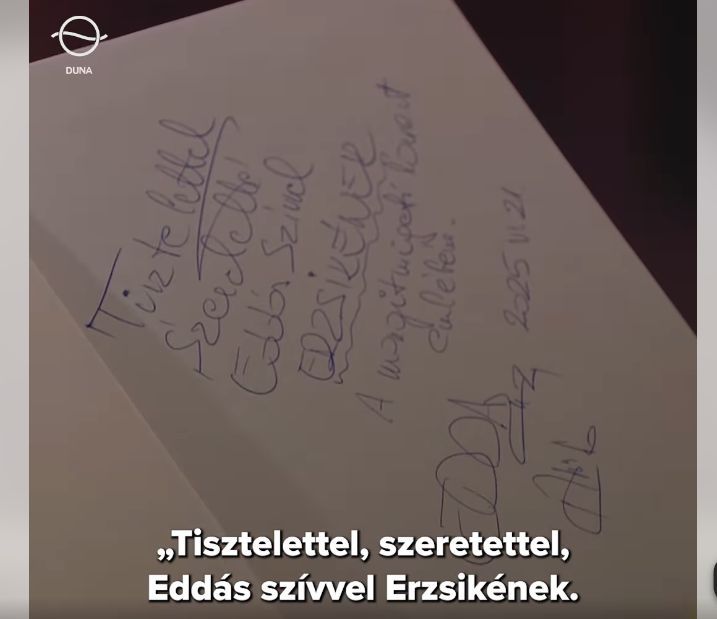 DUNA
Tisztelettel
Szeretettel
Eddás Szívvel
ERZSIKÉNEK
A margitszigeti koncert
emlékére.
2025 VI. 21.
EDDA
„Tisztelettel, szeretettel,
Eddás szívvel Erzsikének.